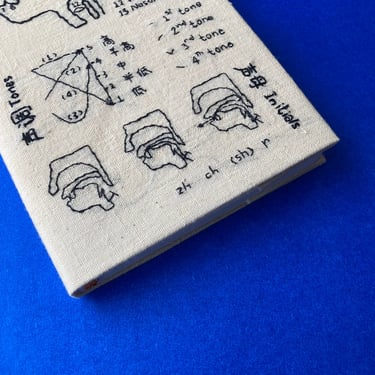 13 Nasal
1st tone
2nd tone
3rd tone
4th tone
5 高
4 半高
3 中
2 半低
1 低
(1)
(2)
(4)
(3)
声调 Tones
声母 Initials
zh ch (sh) r